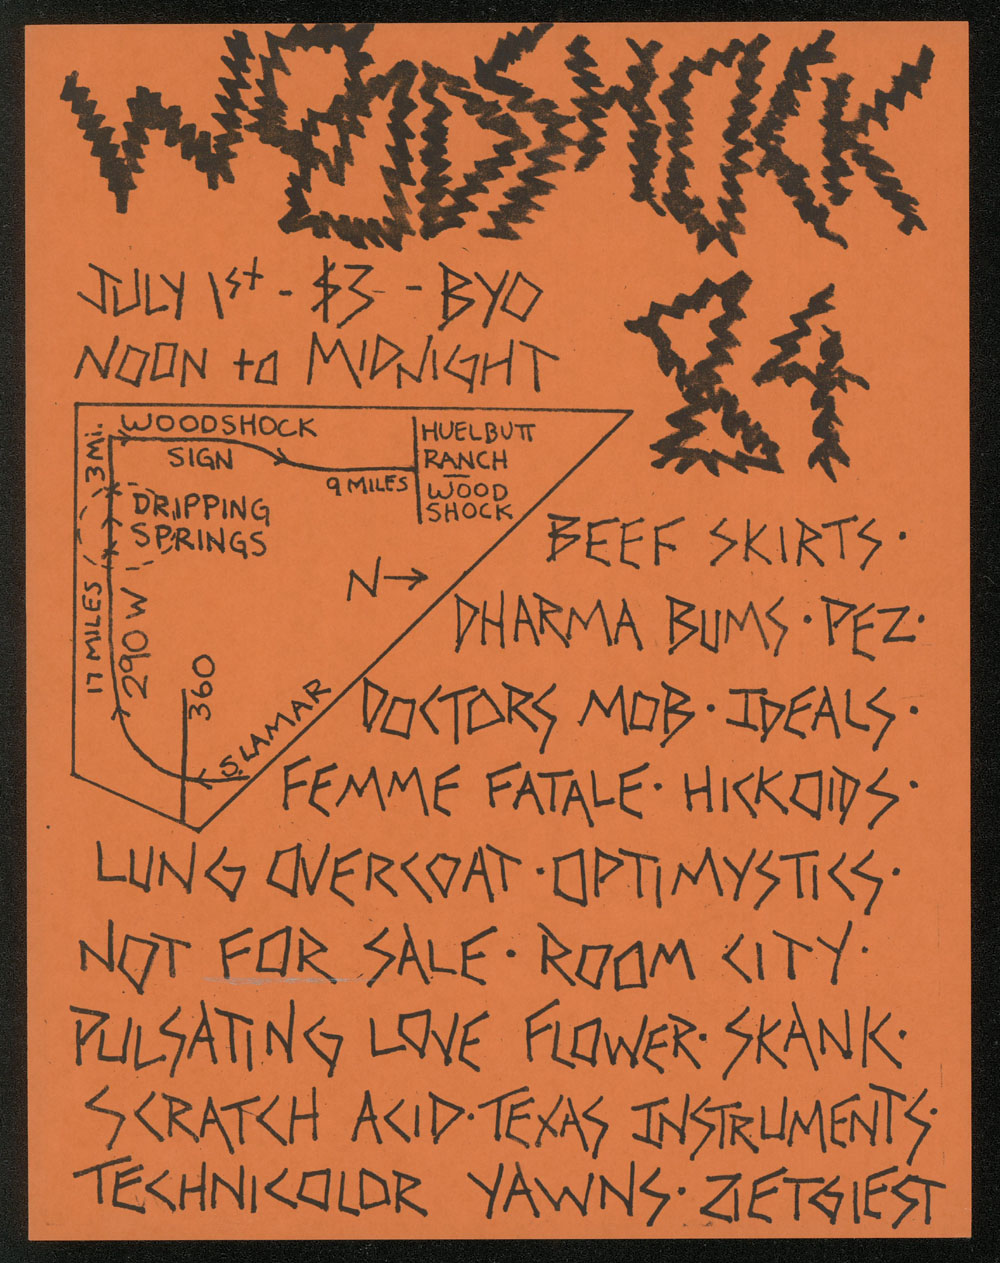 WOODSHOCK
84
JULY 1st - $3 - BYO
NOON to MIDNIGHT
WOODSHOCK
SIGN
3 Mi.
9 MILES
HUELBUTT
RANCH
WOOD
SHOCK
DRIPPING
SPRINGS
N→
17 MILES
290 W
360
S. LAMAR
BEEF SKIRTS ·
DHARMA BUMS · PEZ ·
DOCTORS MOB · IDEALS ·
FEMME FATALE · HICKOIDS ·
LUNG OVERCOAT · OPTIMYSTICS ·
NOT FOR SALE · ROOM CITY ·
PULSATING LOVE FLOWER · SKANK ·
SCRATCH ACID · TEXAS INSTRUMENTS ·
TECHNICOLOR YAWNS · ZIETGIEST